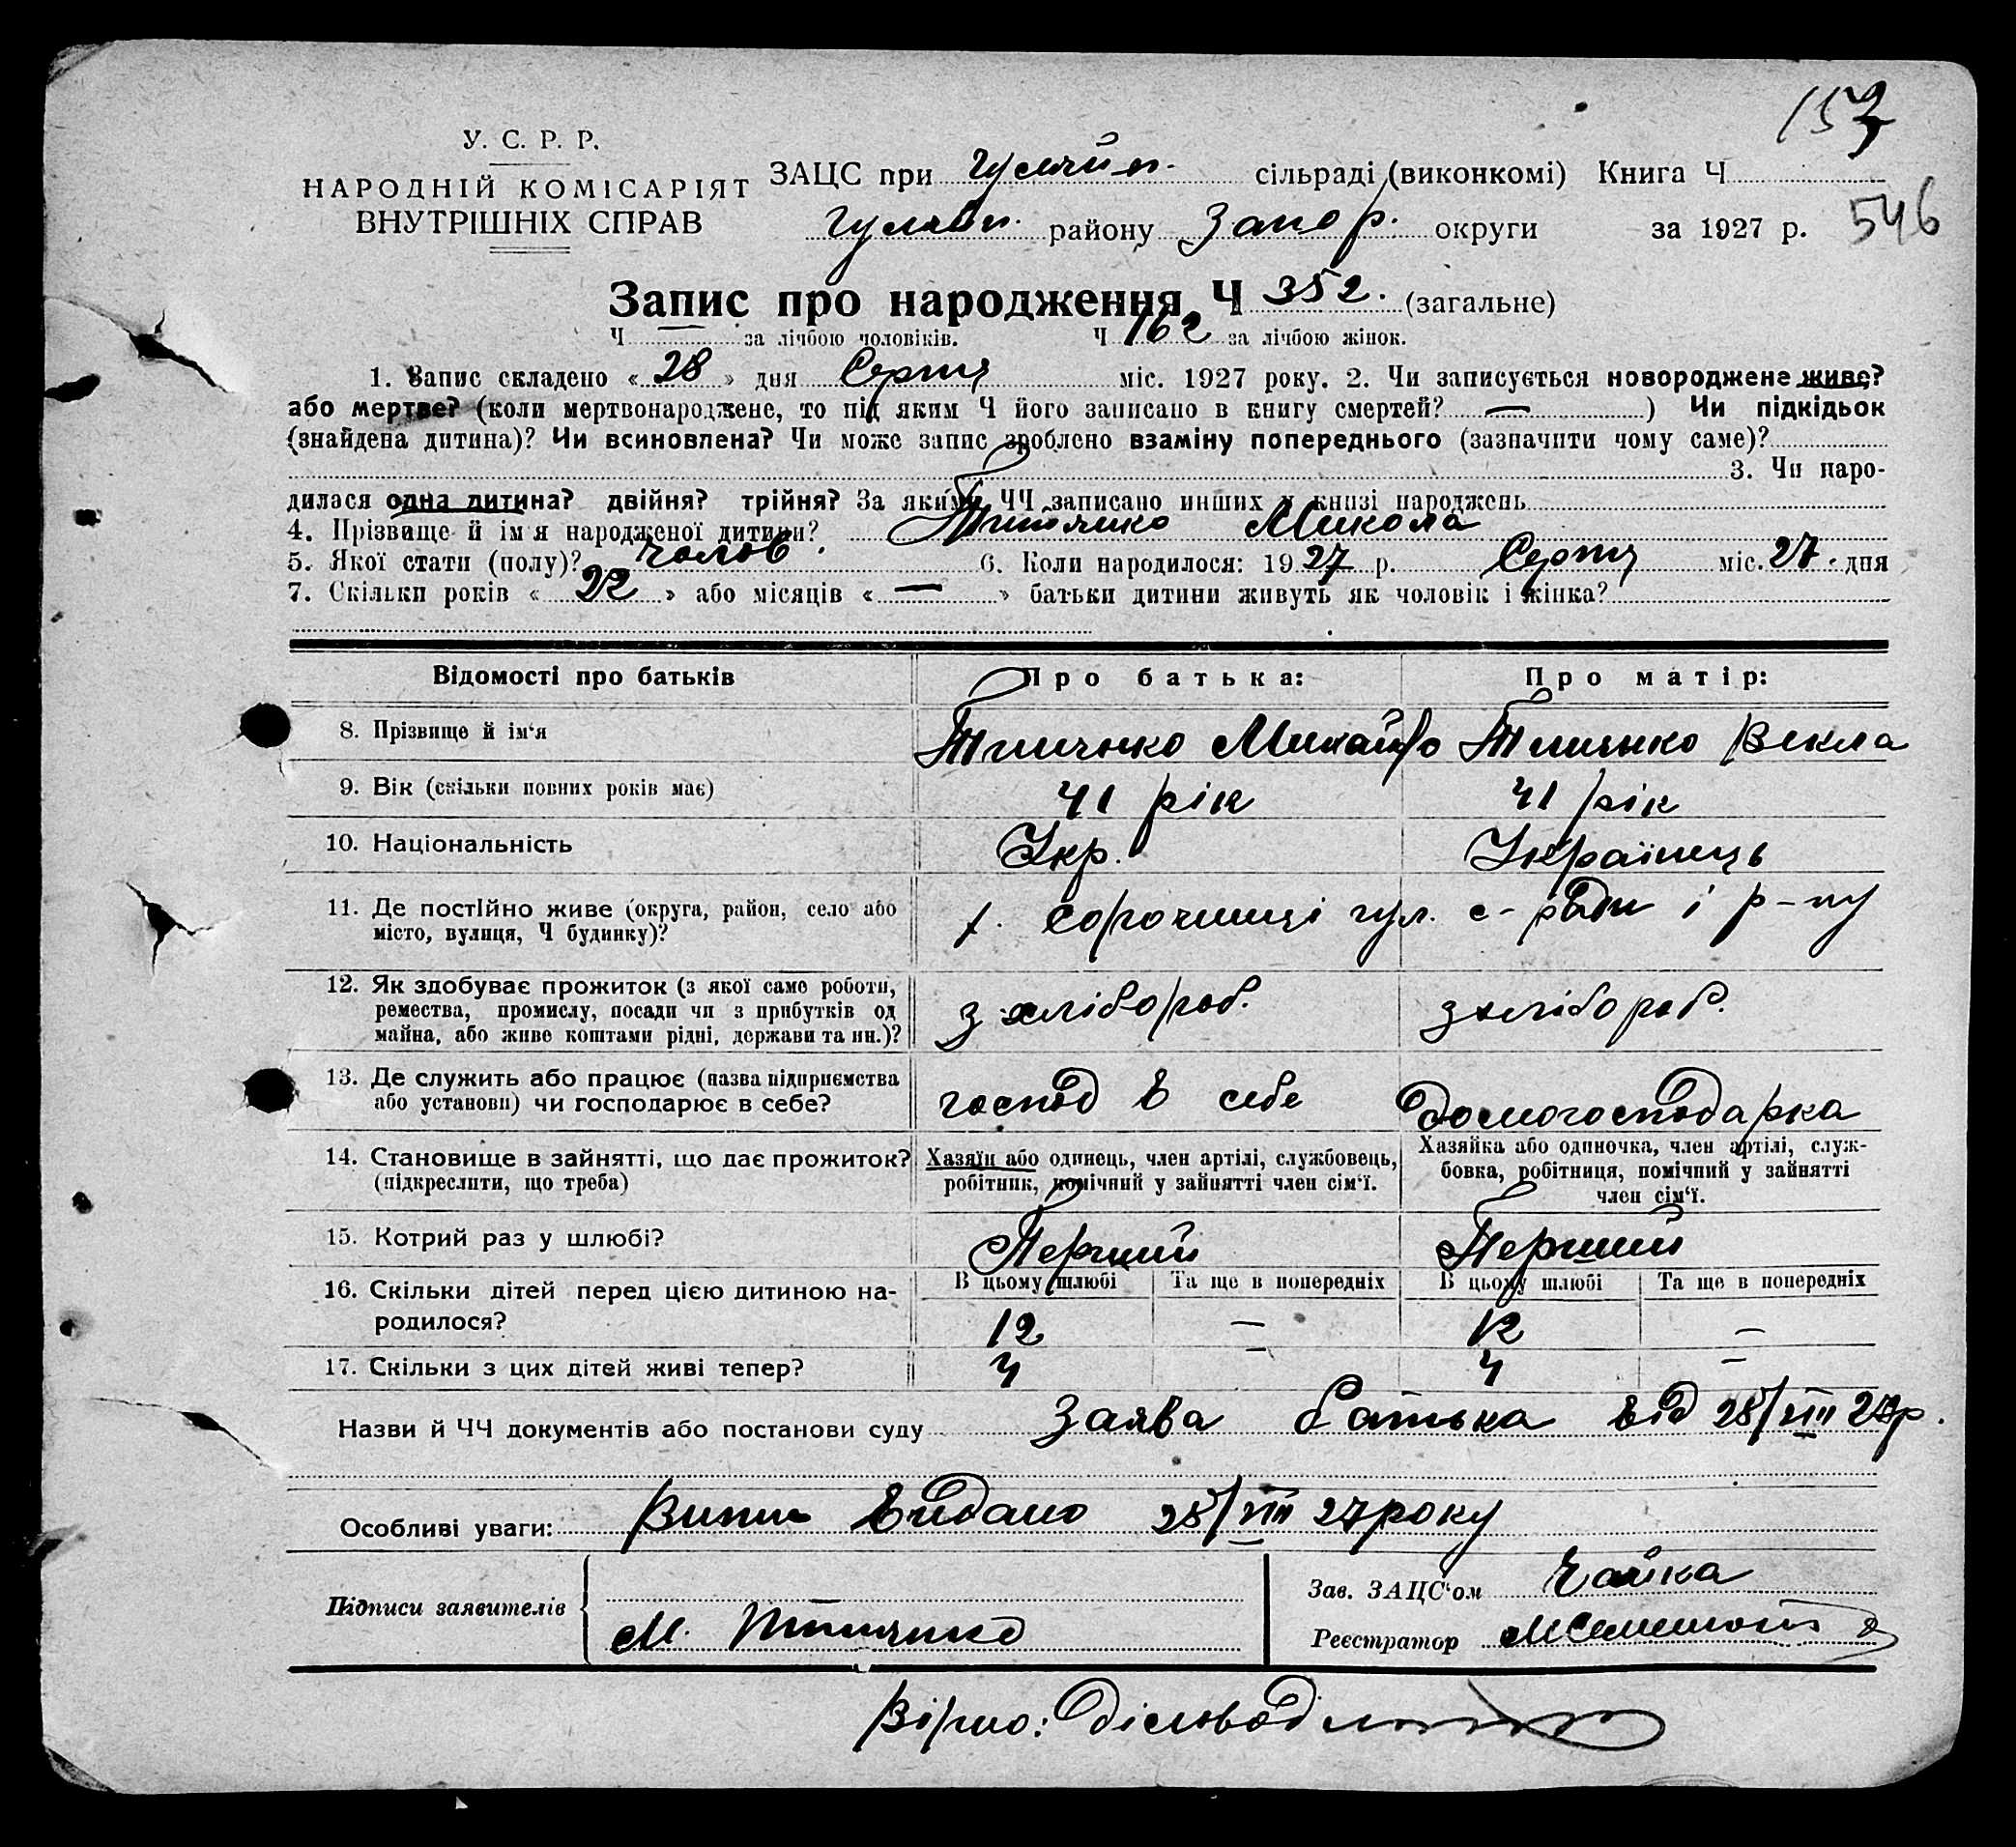 157
У. С. Р. Р.
НАРОДНІЙ КОМІСАРІЯТ
ВНУТРІШНІХ СПРАВ
ЗАЦС при Гуляйп. сільраді (виконкомі) Книга Ч
Гуляйп. району Запор. округи за 1927 р. 546
Запис про народження Ч 352. (загальне)
Ч — за лічбою чоловіків. Ч 162 за лічбою жінок.
1. Запис складено « 28 » дня Серпня міс. 1927 року. 2. Чи записується новороджене живе?
або мертве? (коли мертвонароджене, то під яким Ч його записано в книгу смертей? — ) Чи підкідьок
(знайдена дитина)? Чи всиновлена? Чи може запис зроблено взаміну попереднього (зазначити чому саме)?
3. Чи наро-
дилася одна дитина? двійня? трійня? За якими ЧЧ записано инших у книзі народжень
4. Прізвище й ім'я народженої дитини? Микола
5. Якої стати (полу)? чолов. 6. Коли народилося: 1927 р. Серпня міс. 27. дня
7. Скільки років « 22 » або місяців « — » батьки дитини живуть як чоловік і жінка?
Відомості про батьків Про батька: Про матір:
8. Прізвище й ім'я Михайло Векла
9. Вік (скільки повних років має) 41 рік 41 рік
10. Національність Укр. Українець
11. Де постійно живе (округа, район, село або
місто, вулиця, Ч будинку)? х. Сорочинці гул. с-ради і р-ну
12. Як здобуває прожиток (з якої само роботи,
ремества, промислу, посади чи з прибутків од
майна, або живе коштами рідні, держави та ин.)? з хлібороб. з хлібороб.
13. Де служить або працює (назва підприємства
або установи) чи господарює в себе? господ в себе домогосподарка
14. Становище в зайнятті, що дає прожиток?
(підкреслити, що треба)
Хазяїн або одинець, член артілі, службовець,
робітник, помічний у зайнятті член сім'ї.
Хазяйка або одиночка, член артілі, служ-
бовка, робітниця, помічний у зайнятті
член сім'ї.
15. Котрий раз у шлюбі? Перший Перший
В цьому шлюбі Та ще в попередніх В цьому шлюбі Та ще в попередніх
16. Скільки дітей перед цією дитиною на-
родилося? 12 — 12 —
17. Скільки з цих дітей живі тепер? 4 — 4 —
Назви й ЧЧ документів або постанови суду Заява батька від 28/VIII 27р.
Особливі уваги: Випис видано 28/VIII 27 року
Підписи заявителів М.
Зав. ЗАЦС'ом Чайка
Реєстратор
Вірно: Діловод